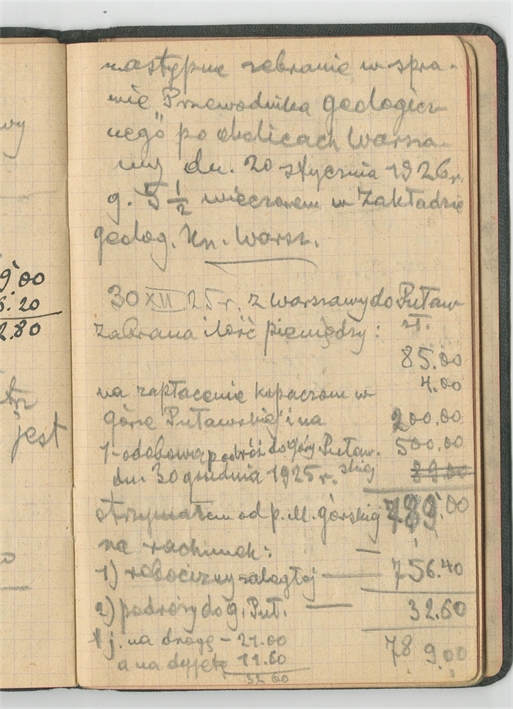 wy
9.00
6.20
2.80
jest
następne zebranie w spra-
wie "Przewodnika geologicz-
nego" po okolicach Warsza-
wy dn. 20 stycznia 1926 r.
g. 5 1/2 wieczorem w Zakładzie
geolog. Un. Warsz.
30 XII 25 r. z Warszawy do Puław
zabrana ilość pieniędzy: zł.
85.00
4.00
na zapłacenie kopaczom w
górze Puławskiej i na 200.00
1-odobową podróż do Góry Puław- 500.00
dn. 30 grudnia 1925 r. skiej 89.00
otrzymałem od p. M. górskiej 789.00
na rachunek:
1) robocizny zaległej — 756.40
2) podróży do g. Puł. — 32.60
t.j. na drogę - 21.00 789.00
a na dyjetę 11.60
32 60